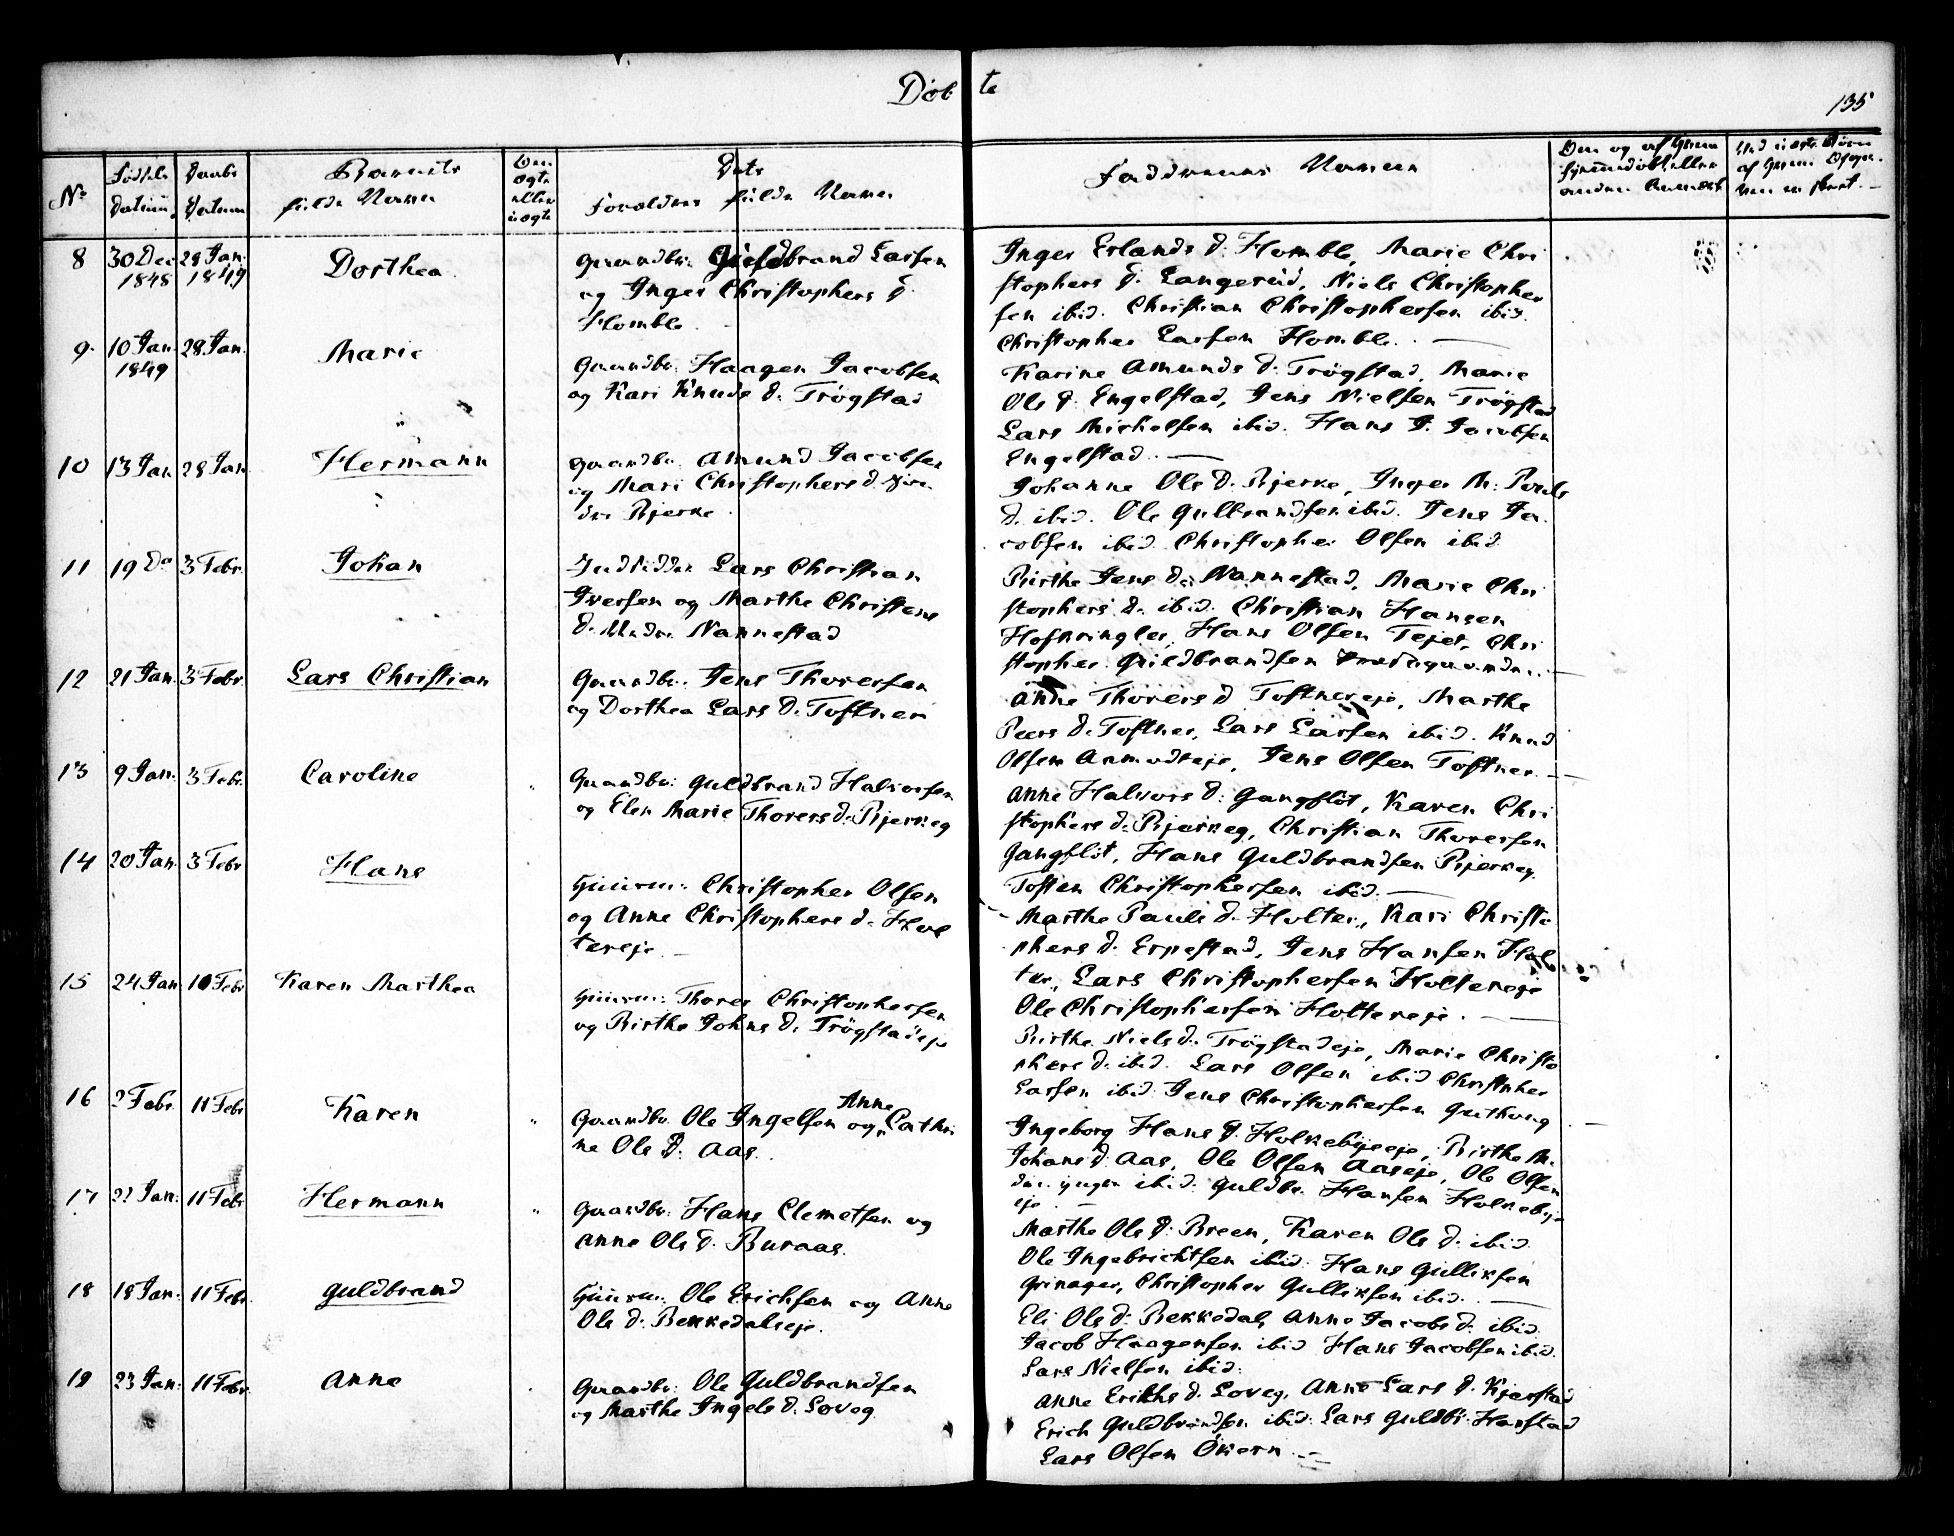 Døbte
135
No
Fødsels Datum
Daabs Datum
Barnets fulde Navn
Om ægte eller uægte
Dets Forældres fulde Navn
Faddernes Navne
8 30 Dec 1848 28 Jan. 1849 Dorthea
Gaardbr. Guldbrand Larsen
og Inger Christophers d.
Homble
Inger Erlands d. Homble, Marie Chri
stophers d. Langerud, Niels Christopher
sen ibid. Christian Christophersen ibid.
Christopher Larsen Homble.
9. 10 Jan. 1849 28 Jan. Marie
Gaardbr. Haagen Jacobsen
og Kari Knuds d. Trøgstad
Karine Amunds d. Trøgstad, Marie
Ols d. Engelstad, Jens Nielsen Trøgstad
Lars Michelsen ibid. Hans J. Jacobsen
Engelstad.
10 13 Jan 28 Jan Hermann
Gaardbr. Amund Jacobsen
og Mari Christophers d.
Bjerke
Johanne Ols d. Bjerke, Inger M. Pouls
d. ibid. Ole Gulbrandsen ibid. Jens Ja
cobsen ibid. Christopher Olsen ibid
11 19 Do 3 Febr. Johan
Inderster Lars Christian
Iversen og Marthe Christens
d. Nannestad
Birthe Jens d. Nannestad, Marie Chri
stophers d. ibid. Christian Hansen
Hofkringler, Hans Olsen Tejet, Chri
stopher Guldbrandsen
12 21 Jan. 3 Febr. Lars Christian
Gaardbr. Jens Thoversen
og Dorthea Lars d. Toftner
Anne Thorers d. Toftnereje, Marthe
Peers d. Toftner, Lars Larsen ibid. Knud
Olsen Anmodteje, Jens Olsen Toftner.
13 9 Jan. 3 Febr. Caroline
Gaardbr. Guldbrand Halvorsen
og Elen Marie Thorers d. Bjerkeg
Anne Halvors d. Gangflöt, Karen Chri
stophers d. Bjerkeg, Christian Thoversen
Gangflöt, Hans Guldbrandsen Bjerkeg
Tosten Christophersen ibid.
14 20 Jan. 3 Febr Hans
Huusm. Christopher Olsen
og Anne Christophers d. Hol
tereje
Marthe Pauls d. Holter, Kari Christo
phers d. Erpestad, Jens Hansen Hol
ter, Lars Christophersen Holtereje
Ole Christophersen Holtereje.
15 24 Jan 10 Febr Karen Marthea
Huusm. Thorer Christophersen
og Birthe Johns d. Trøgstadeje
Birthe Niels d. Trøgstadeje, Marie Christo
phers d. ibid. Lars Olsen ibid Christopher
Larsen ibid. Jens Christophersen
16 2 Febr. 11 Febr Karen
Gaardbr. Ole Ingelsen og Anne Cathri
ne Ols d. Aas.
Ingeborg Hans d. Holkebyeeje, Birthe M.
Johans d. Aas, Ole Olsen Aaseje, Ole Olsen
ibid. Guldbr. Hansen Holkebye
eje
17 22 Jan. 11 Febr Hermann
Gaardbr. Hans Clemetsen og
Anne Ols d. Buraas.
Marthe Ols d. Breen, Karen Ols d. ibid.
Ole Ingebrichtsen ibid. Hans Gulliksen
Grinager, Christopher Gulliksen ibid.
18 18 Jan. 11 Febr. Guldbrand
Huusm. Ole Erichsen og Anne
Ols d. Bekkedalseje.
Eli Ols d. Bekkedal, Anne Jacobs d. ibid.
Jacob Haagensen ibid Hans Jacobsen ibid.
Lars Nielsen ibid.
19 23 Jan. 11 Febr. Anne
Gaardbr. Ole Guldbrandsen
og Marthe Ingels d. Loveg
Anne Eriths d. Loveg, Anne Lars d. Kjærstad
Erich Guldbrandsen ibid. Lars Guldbr. Harstad
Lars Olsen Økern